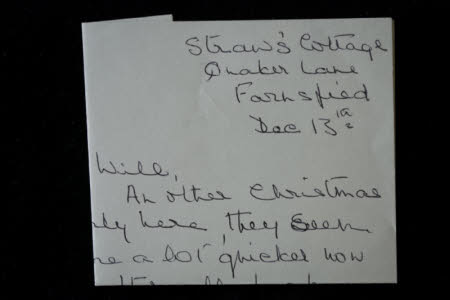 Straw's Cottage
Quaker Lane
Farnsfied
Dec 13th
Will,
An other Christmas
ly here, they seem
e a lot quicker now